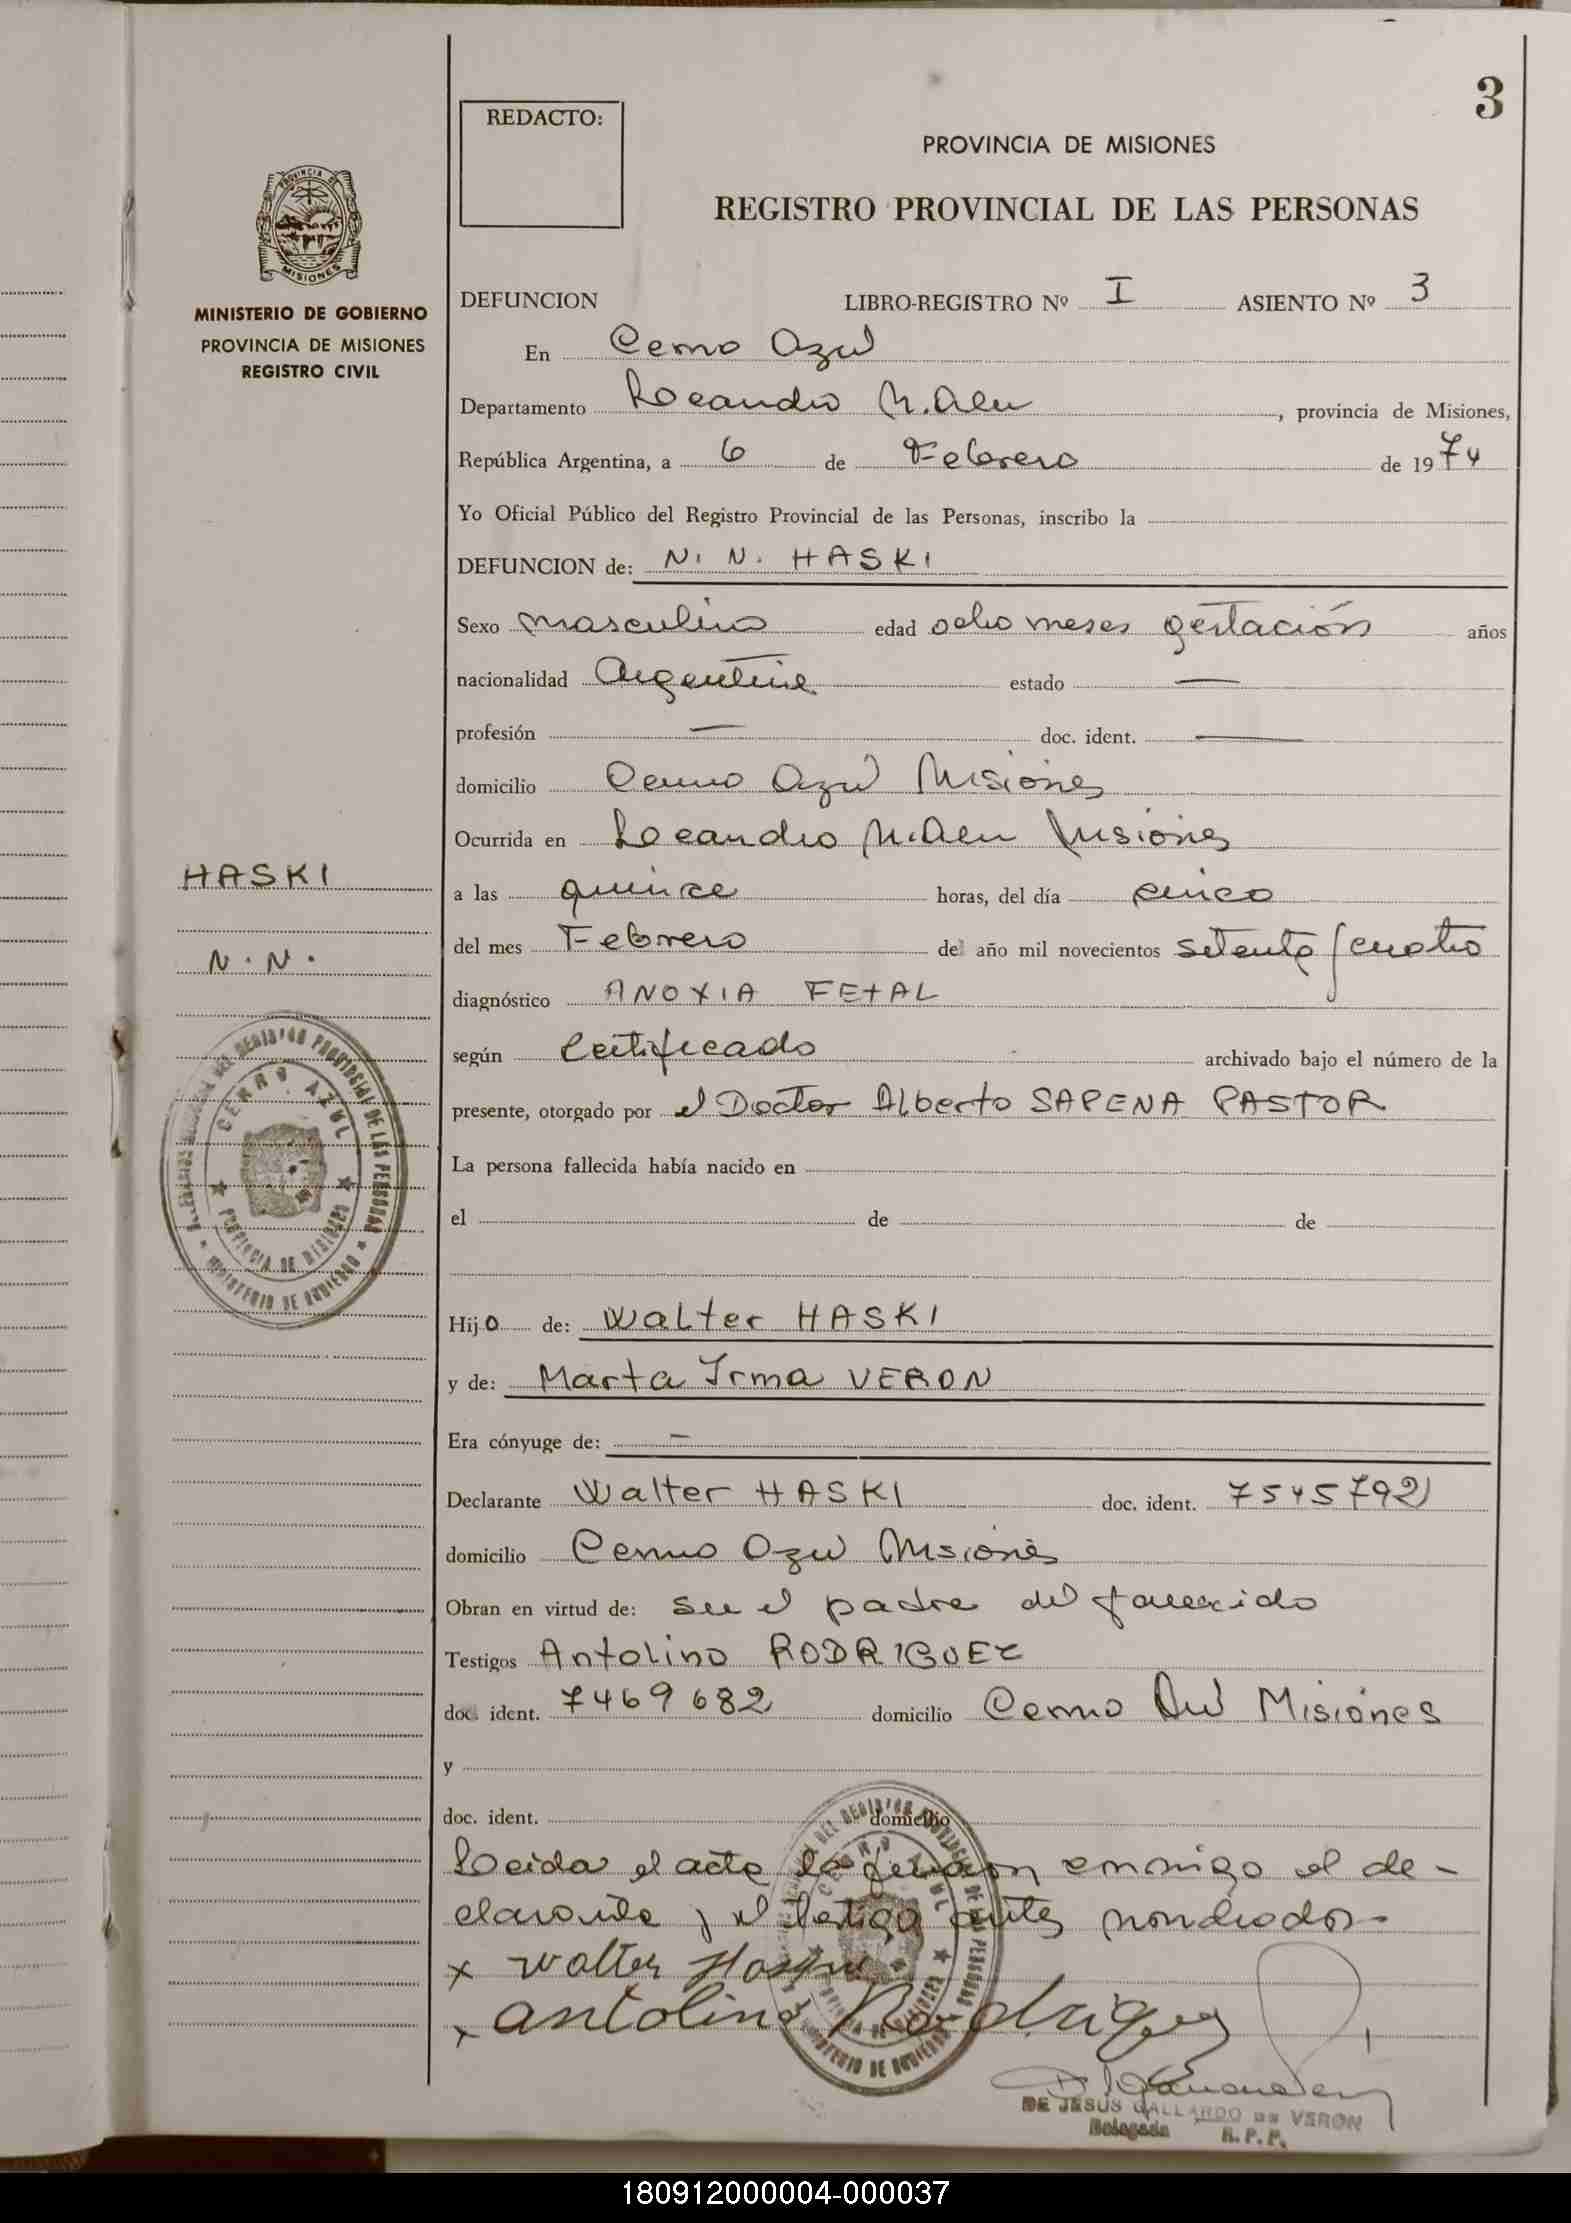 3
REDACTO:
PROVINCIA DE MISIONES
REGISTRO PROVINCIAL DE LAS PERSONAS
PROVINCIA DE
MISIONES
MINISTERIO DE GOBIERNO
PROVINCIA DE MISIONES
REGISTRO CIVIL
DEFUNCION LIBRO-REGISTRO Nº I ASIENTO Nº 3
En Cerro Azul
Departamento Leandro N. Alem, provincia de Misiones,
República Argentina, a 6 de Febrero de 1974
Yo Oficial Público del Registro Provincial de las Personas, inscribo la
DEFUNCION de: N. N. HASKI
Sexo masculino edad ocho meses gestación años
nacionalidad Argentina estado —
profesión — doc. ident. —
domicilio Cerro Azul Misiones
Ocurrida en Leandro N. Alem Misiones
HASKI
a las quince horas, del día cinco
N. N.
del mes Febrero del año mil novecientos setenta y cuatro
diagnóstico ANOXIA FETAL
según Certificado archivado bajo el número de la
presente, otorgado por el Doctor Alberto SAPENA PASTOR
DEL REGISTRO PROVINCIAL DE LAS PERSONAS
CERRO AZUL
PROVINCIA DE MISIONES
MINISTERIO DE GOBIERNO
La persona fallecida había nacido en
el de de
Hijo de: Walter HASKI
y de: Marta Irma VERON
Era cónyuge de: —
Declarante Walter HASKI doc. ident. 7545792
domicilio Cerro Azul Misiones
Obran en virtud de: ser el padre del fallecido
Testigos Antolino RODRIGUEZ
doc. ident. 7469682 domicilio Cerro Azul Misiones
y
doc. ident. domicilio
Leida el acta la firman conmigo el de-
clarante y el testigo antes nombrados-
x Walter
x antolino Rodriguez
DE JESUS GALLARDO DE VERON
Delegada R. P. P.
180912000004-000037